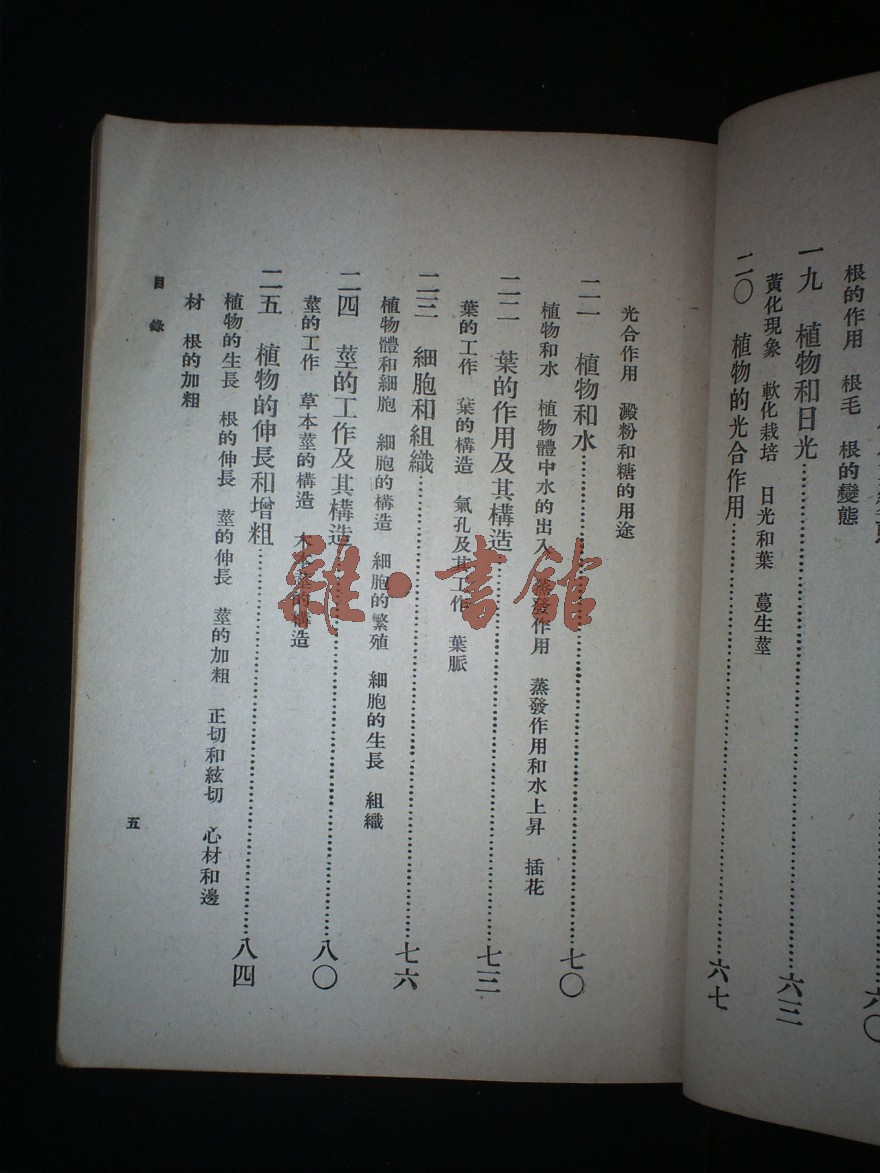 六〇
根的作用　根毛　根的變態
一九　植物和日光……六三
黃化現象　軟化栽培　日光和葉　蔓生莖
二〇　植物的光合作用……六七
光合作用　澱粉和糖的用途
二一　植物和水……七〇
植物和水　植物體中水的出入　蒸發作用　蒸發作用和水上昇　插花
二二　葉的作用及其構造……七三
葉的工作　葉的構造　氣孔及其工作　葉脈
二三　細胞和組織……七六
植物體和細胞　細胞的構造　細胞的繁殖　細胞的生長　組織
二四　莖的工作及其構造……八〇
莖的工作　草本莖的構造　木本莖的構造
二五　植物的伸長和增粗……八四
植物的生長　根的伸長　莖的伸長　莖的加粗　正切和絃切　心材和邊
材　根的加粗
目錄
五
雜·書館